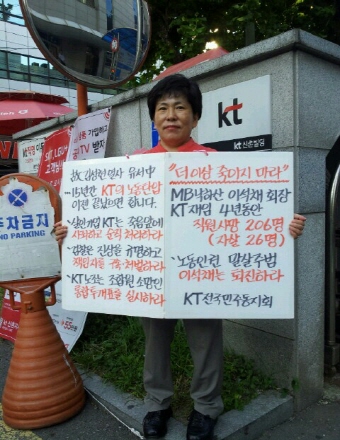 kt
kt 신촌빌딩
주차금지
NO PARKING
故 김성현 열사 유서中
~15년간 KT의 노동탄압
이젠 끝났으면 합니다.
KT는 죽음앞에
사죄하고
진상을 규명하고
책임자를 구속·처벌하라
~KT노조는 조합원
실시하라
"더이상 죽이지 마라"
MB낙하산 이석채 회장
KT 재임 4년동안
직원사망 206명
(자살 26명)
~노동인권 말살주범
이석채는 퇴진하라
KT 전국민주동지회